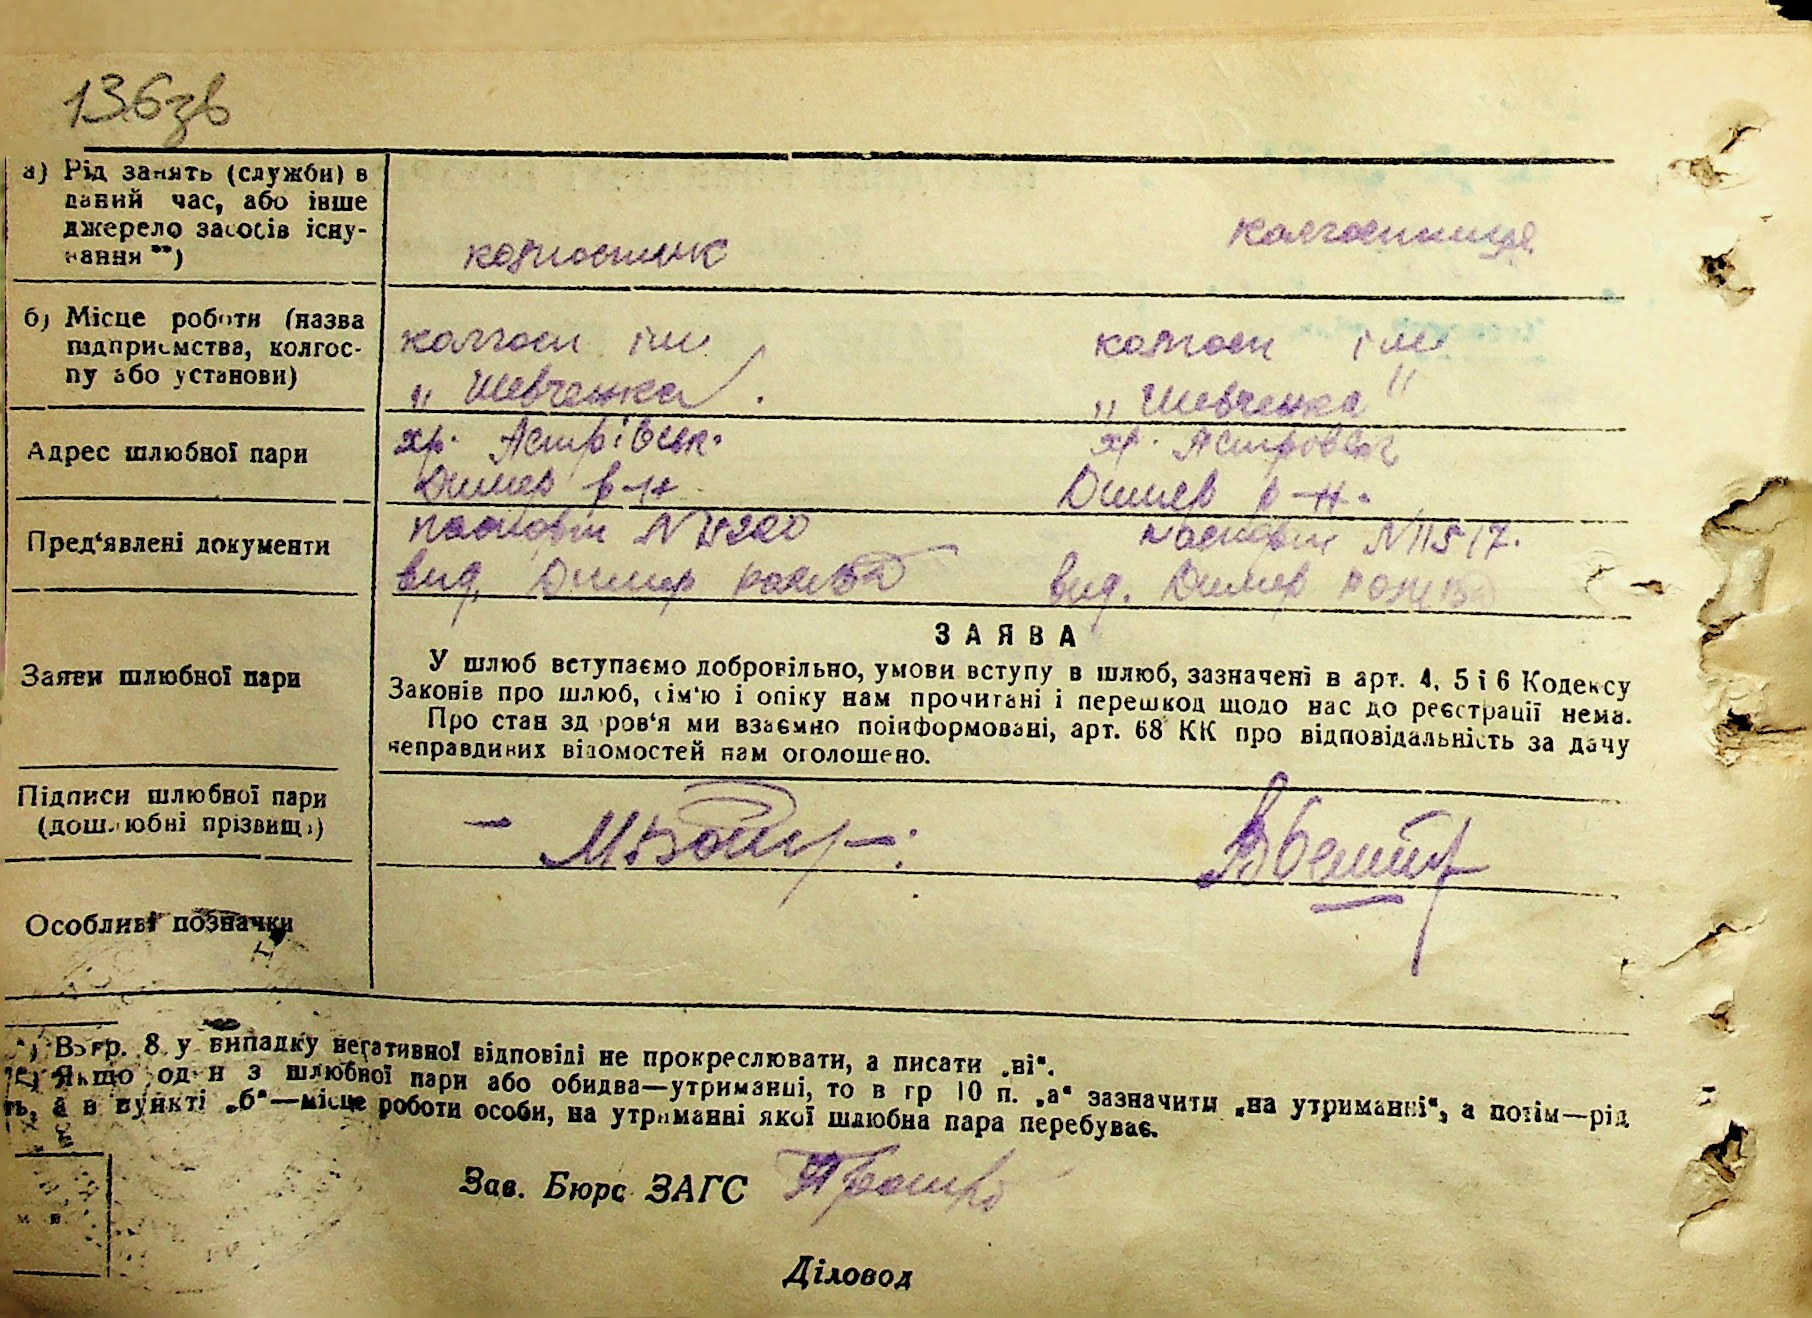 136зв
а) Рід занять (служби) в
даний час, або інше
джерело засобів існу-
вання **)
колгоспник
колгоспниця
б) Місце роботи (назва
підприємства, колгос-
пу або установи)
колгосп ім
„ Шевченка
колгосп ім
„ Шевченка "
Адрес шлюбної пари
хр.
Димер р-н
хр.
Димер р-н.
Пред‘явлені документи
паспорт №
вид. Димер
паспорт № 11517.
вид. Димер
Заяви шлюбної пари
ЗАЯВА
У шлюб вступаємо добровільно, умови вступу в шлюб, зазначені в арт. 4, 5 і 6 Кодексу
Законів про шлюб, сім‘ю і опіку нам прочитані і перешкод щодо нас до реєстрації нема.
Про стан здоров‘я ми взаємно поінформовані, арт. 68 КК про відповідальність за дачу
неправдивих відомостей нам оголошено.
Підписи шлюбної пари
(дошлюбні прізвища)
Особливі позначки
*) В гр. 8 у випадку негативної відповіді не прокреслювати, а писати „ні“.
Якщо один з шлюбної пари або обидва—утриманці, то в гр 10 п. „а“ зазначити „на утриманні“, а потім—рід
а в пункті „б“—місце роботи особи, на утриманні якої шлюбна пара перебуває.
Зав. Бюро ЗАГС
Діловод